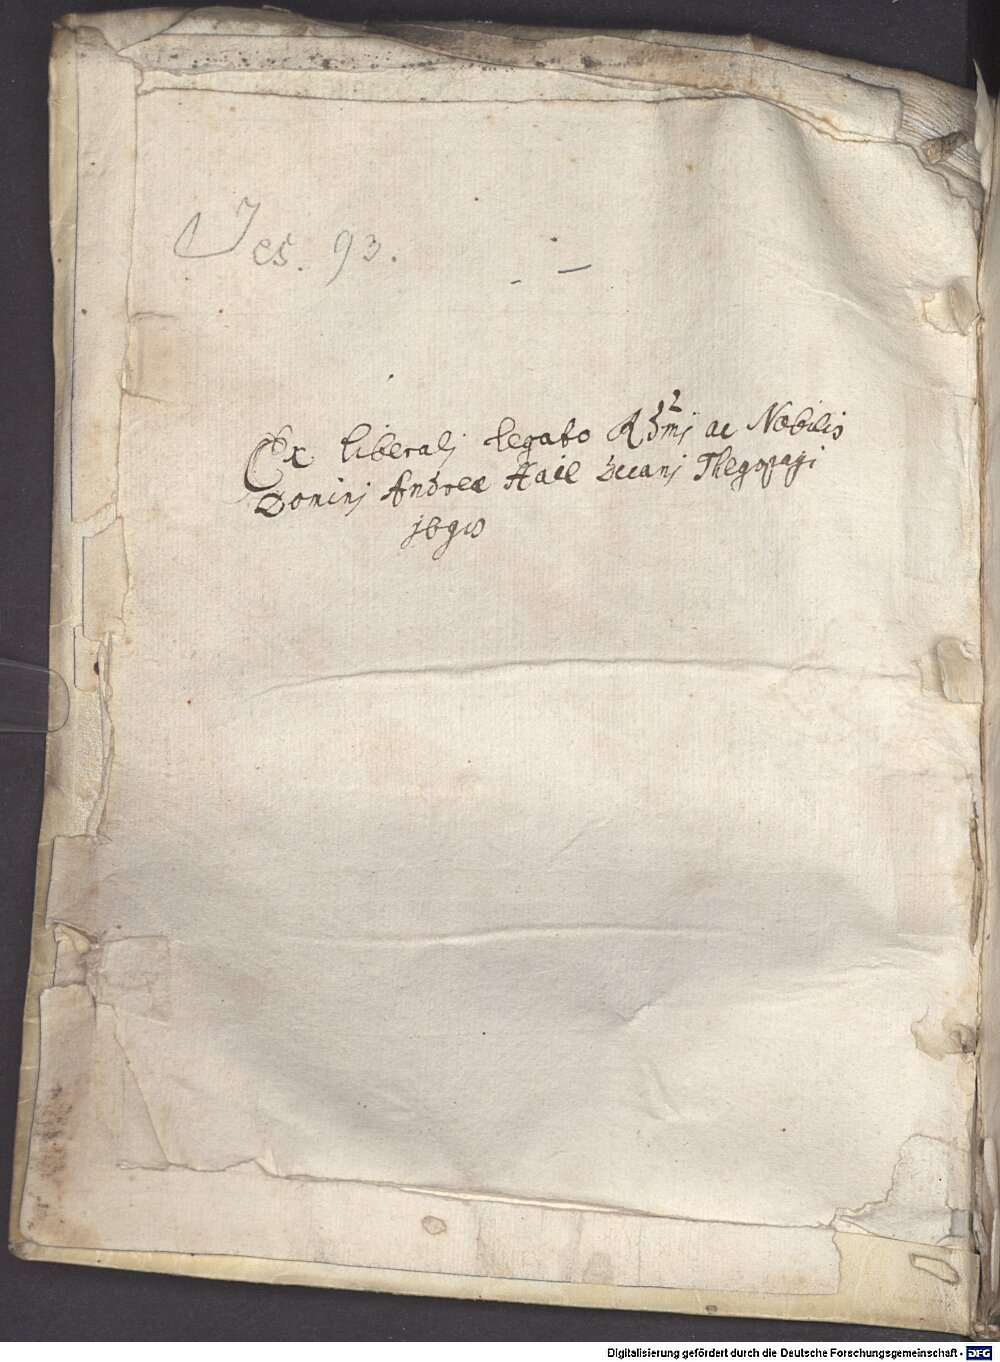 Jes. 93.
Ex liberalj legato Rdmj ac Nobilis
Dominj Andreæ Hail Decanj Thegopagi
Digitalisierung gefördert durch die Deutsche Forschungsgemeinschaft - DFG